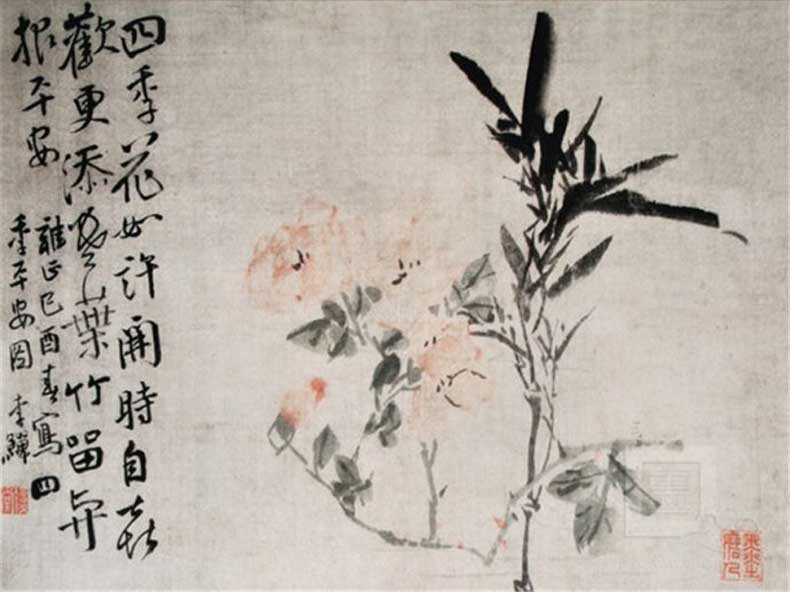 四季花如許開時自喜
歡更添葉竹留与
报平安
雍正己酉春寫四
季平安圖 李鱓